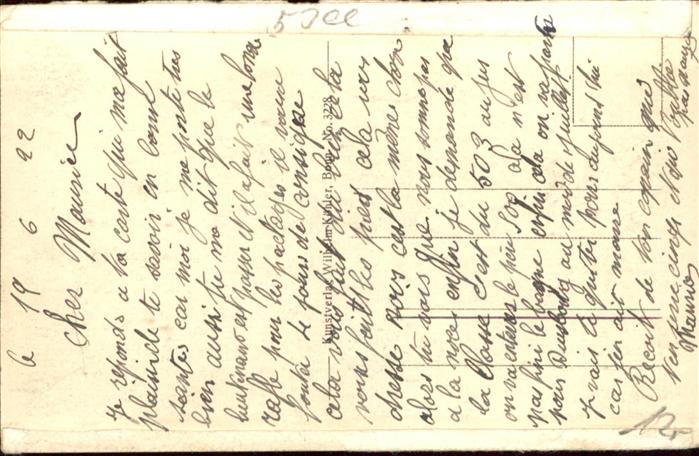 le 19 6 22
Cher Maurice
je réponds à ta carte qui me fait
plaisir de te savoir en bonne
santée car moi je me porte très
bien aussi tu me dit que le
lieutenant est passer et il a fait une bonne
rafle pour les pactages il vous
foutu 4 jours de consigne
cela vous fait du bien cela
vous fait les pieds cela vos
chosse nois c'est la mêmes chose
alors tu vois que nous somme pas
à la noce enfin je demande que
la classe c'est du 503 au jus
on va enterrer le père 500 cela n'est
pas fini le bagne enfin cela on va partir
pour au mois de Juillet
je vais te quitter pour aujourd'hui
car j'en ait marre
Recoit de ton copain qui
ten serre cinq
Maurice
Kunstverlag Wilhelm Köhler, Bonn No. 328
500
12,-